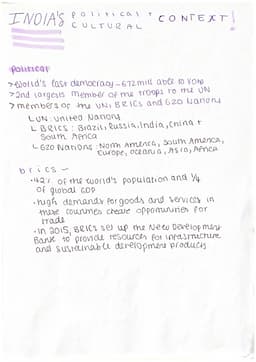 INDIA'S political + CONTEXT!
CULTURAL
political
> World's last democracy - 672 mill able to vote
> 2nd largest member of the troops to the UN
> members of the UN, BRICS and G20 Nations
↳ UN: United Nations
↳ BRICS: Brazil, Russia, India, China +
South Africa
↳ G20 Nations: North America, South America,
Europe, Oceania, Asia, Africa
brics -
• 42% of the world's population and 1/4
of global GDP
• high demands for goods and services in
these countries create opportunities for
trade
• In 2015, BRICS set up the New Development
Bank to provide resources for infrastructure
and sustainable development products